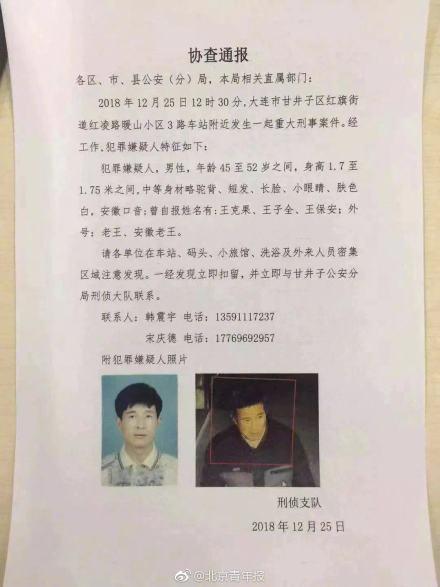 协查通报
各区、市、县公安（分）局，本局相关直属部门：
2018年12月25日12时30分，大连市甘井子区红旗街
道红凌路暖山小区3路车站附近发生一起重大刑事案件。经
工作，犯罪嫌疑人特征如下：
犯罪嫌疑人，男性，年龄45至52岁之间，身高1.7至
1.75米之间，中等身材略驼背、短发、长脸、小眼睛、肤色
白，安徽口音；曾自报姓名有：王克果、王子全、王保安；外
号：老王、安徽老王。
请各单位在车站、码头、小旅馆、洗浴及外来人员密集
区域注意发现。一经发现立即扣留，并立即与甘井子公安分
局刑侦大队联系。
联系人：韩震宇 电话：13591117237
宋庆德 电话：17769692957
附犯罪嫌疑人照片
刑侦支队
2018年12月25日
@北京青年报